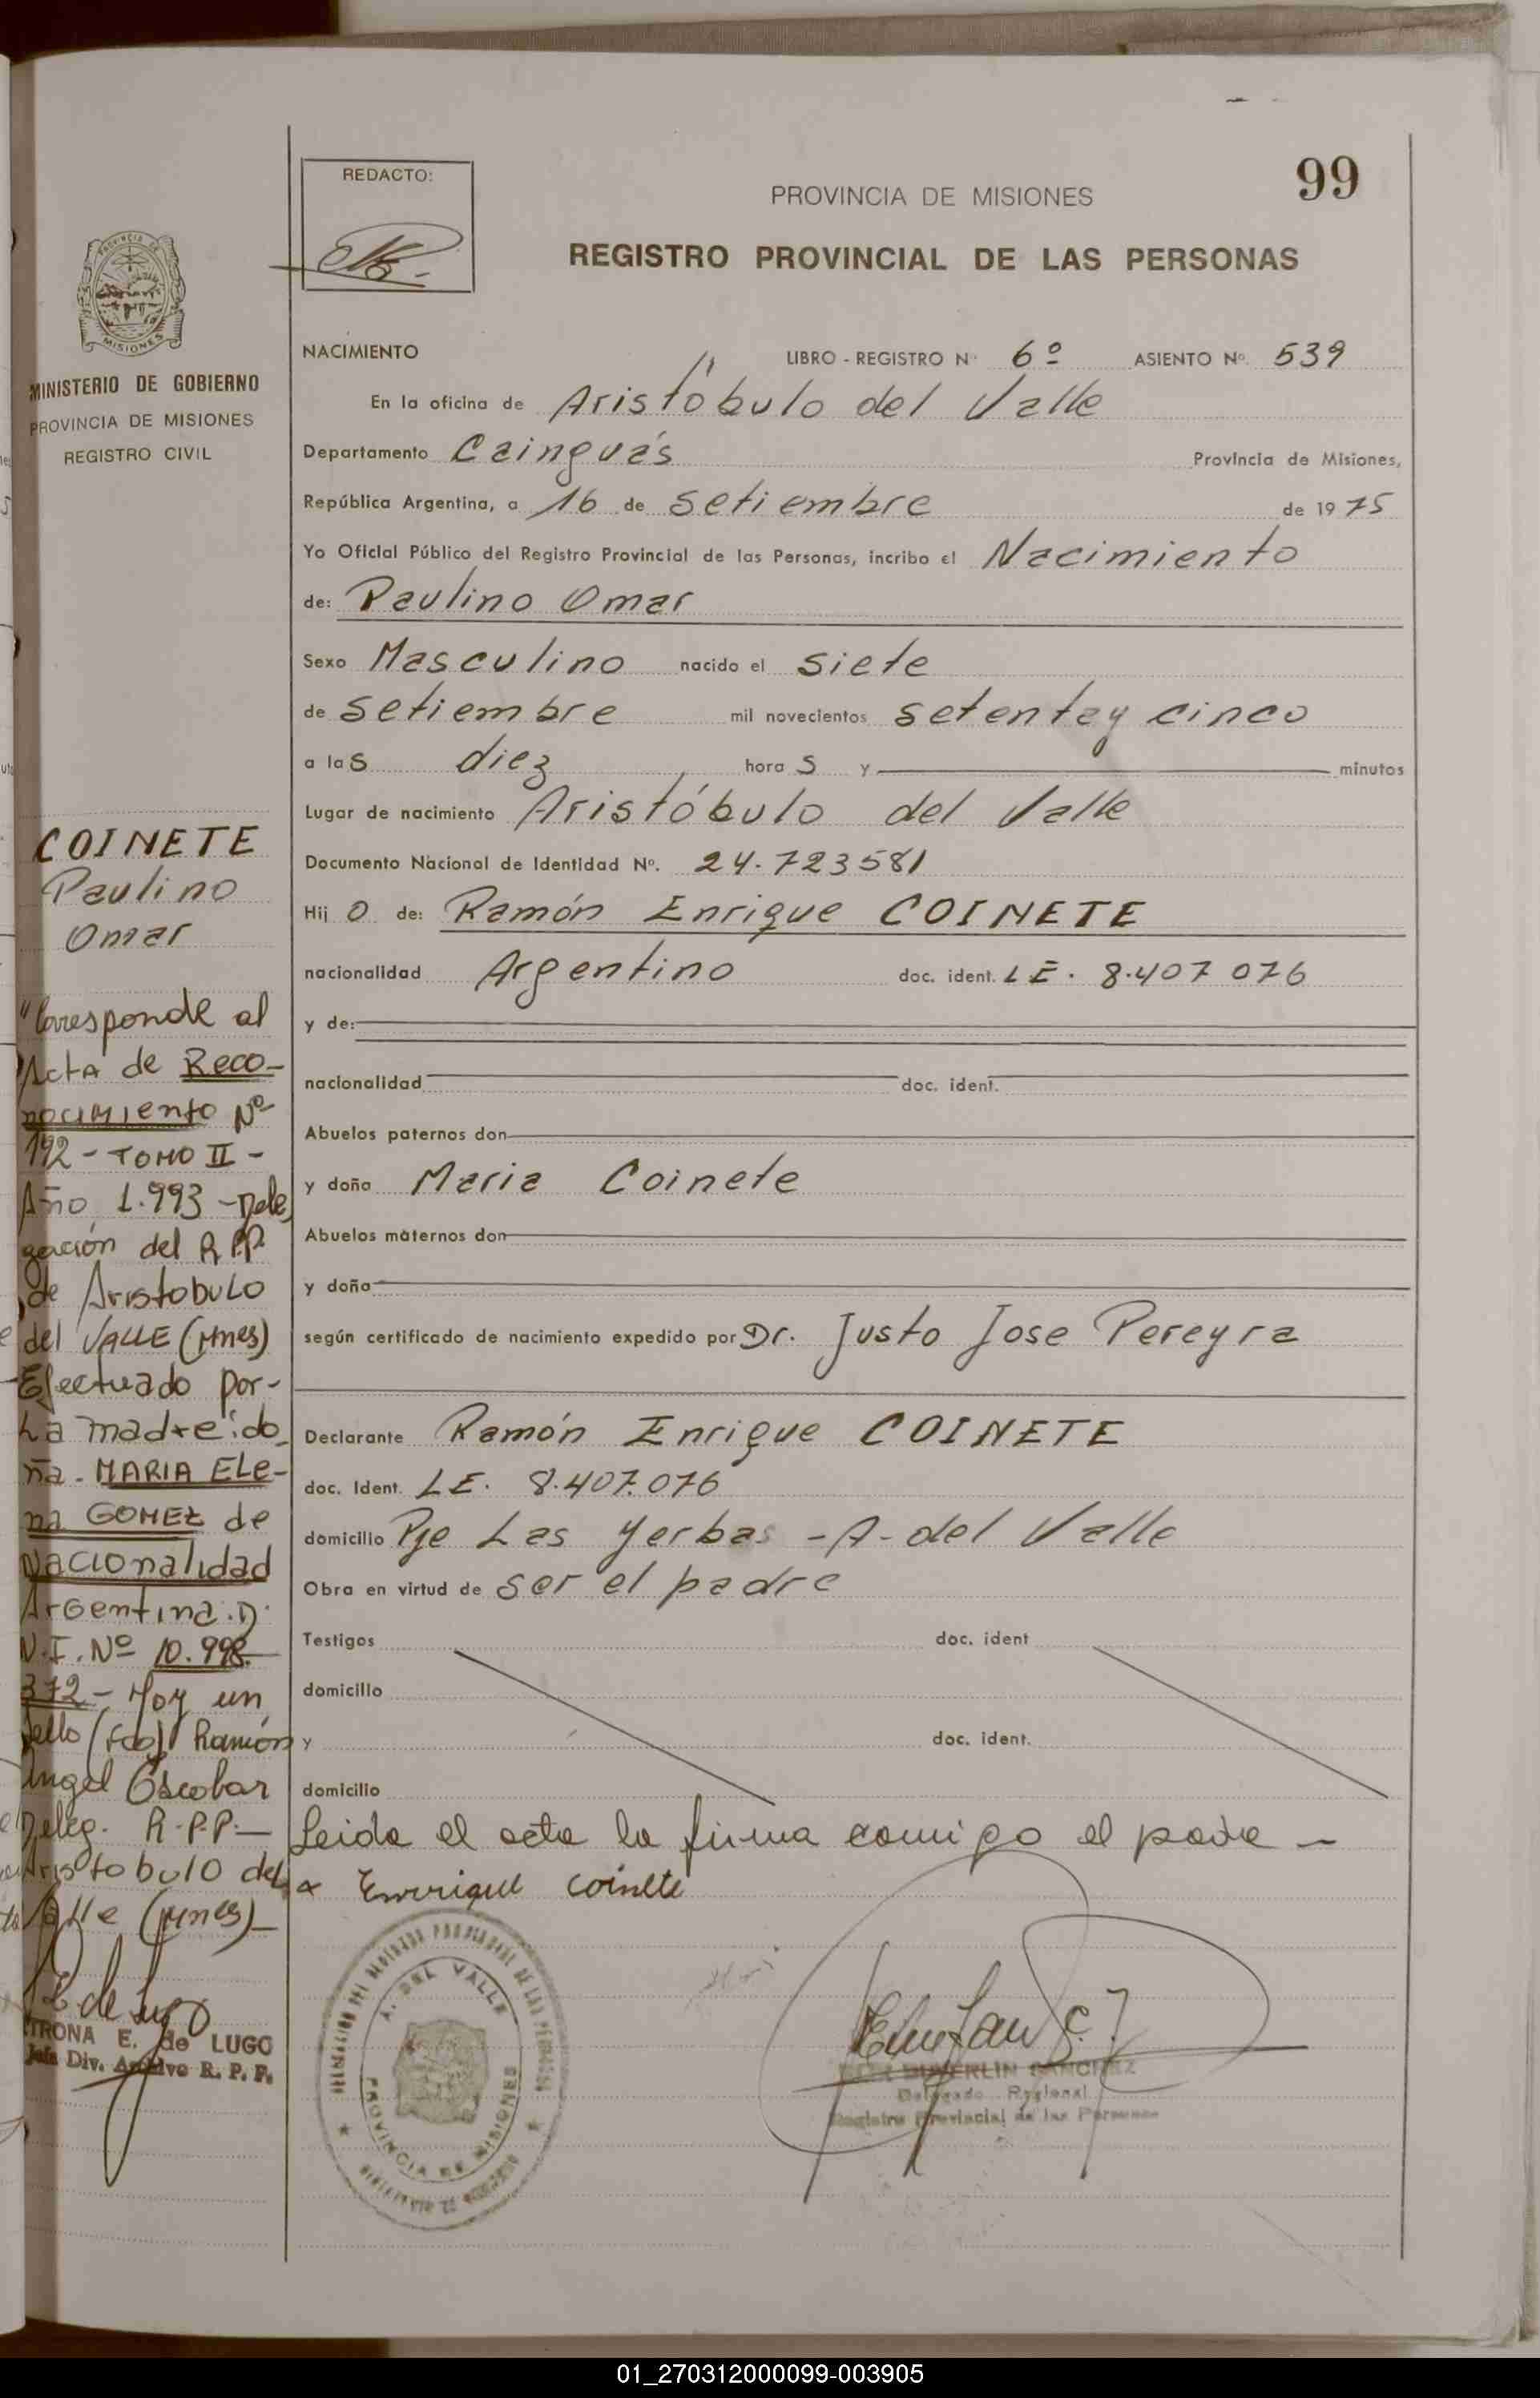 99
REDACTO:
PROVINCIA DE MISIONES
REGISTRO PROVINCIAL DE LAS PERSONAS
PROVINCIA DE
MISIONES
MINISTERIO DE GOBIERNO
PROVINCIA DE MISIONES
REGISTRO CIVIL
COINETE
Paulino
Omar
"Corresponde al
Acta de Reco-
nocimiento Nº
192 - TOMO II -
Año 1.993 - Dele
gación del R.P.P.
de Aristobulo
del VALLE (Mnes)
Efectuado por-
La madre: do
ña - MARIA ELE-
na GOMEZ de
Nacionalidad
Argentina. D.
N.I. Nº 10.998.
372 - Hoy un
sello (fdo) Ramón
Angel Escobar
Deleg. R.P.P.-
Aristobulo del
Valle (Mnes)-
E. de Lugo
E. de LUGO
Jefa Div. Archivo R. P. P.
NACIMIENTO LIBRO - REGISTRO Nº 6º ASIENTO Nº 539
En la oficina de Aristóbulo del Valle
Departamento Cainguás Provincia de Misiones,
República Argentina, a 16 de setiembre de 1975
Yo Oficial Público del Registro Provincial de las Personas, incribo el Nacimiento
de: Paulino Omar
Sexo Masculino nacido el siete
de setiembre mil novecientos setenta y cinco
a las diez horas y minutos
Lugar de nacimiento Aristóbulo del Valle
Documento Nacional de Identidad Nº. 24.723581
Hijo de: Ramón Enrique COINETE
nacionalidad Argentino doc. ident. LE. 8.407 076
y de:
nacionalidad doc. ident.
Abuelos paternos don
y doña Maria Coinete
Abuelos maternos don
y doña
según certificado de nacimiento expedido por Dr. Justo Jose Pereyra
Declarante Ramón Enrique COINETE
doc. Ident. LE. 8.407.076
domicilio Pje Las Yerbas - A- del Valle
Obra en virtud de ser el padre
Testigos doc. ident
domicilio
y doc. ident.
domicilio
Leida el acta la firma comigo el padre -
x Enrrique coinete
DELEGACION DEL REGISTRO PROVINCIAL DE LAS PERSONAS
A. DEL VALLE
PROVINCIA DE MISIONES
MINISTERIO DE GOBIERNO
SANCHEZ
Delegado Regional
Registro Provincial de las Personas
01_270312000099-003905